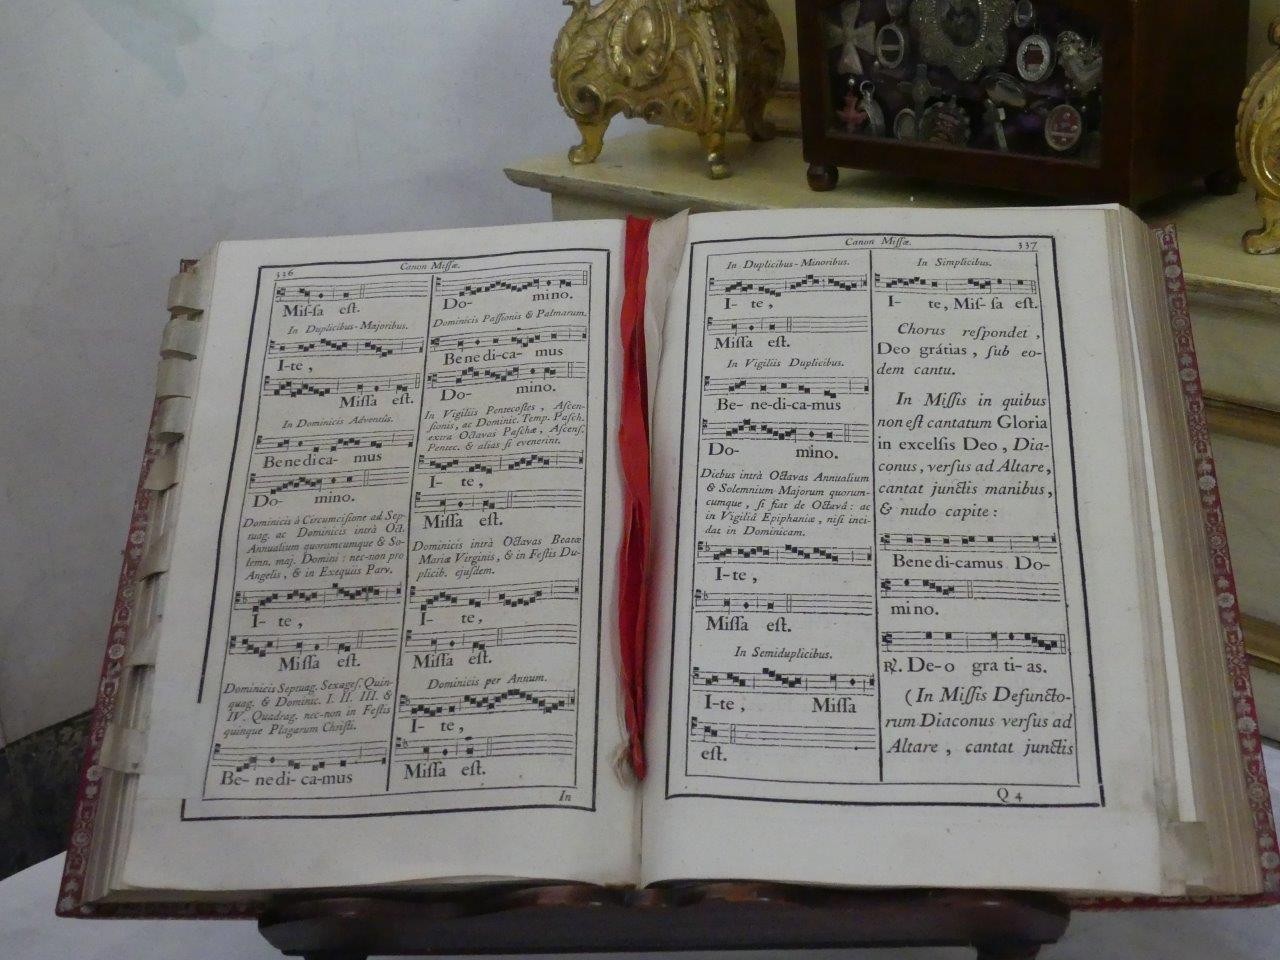 336
Canon Missæ.
Mis-sa est.
In Duplicibus-Majoribus.
I- te,
Missa est.
In Dominicis Adventûs.
Benedica- mus
Do- mino.
Dominicis à Circumcisione ad Sep-
tuag. ac Dominicis intrà Oct.
Annualium quorumcumque & So-
lemn. maj. Domini : nec-non pro
Angelis, & in Exequiis Parv.
I- te,
Missa est.
Dominicis Septuag. Sexages. Quin-
quag. & Dominic. I. II. III. &
IV. Quadrag. nec-non in Festis
quinque Plagarum Christi.
Be- nedi- ca-mus
Do- mino.
Dominicis Passionis & Palmarum.
Benedi-ca- mus
Do- mino.
In Vigiliis Pentecostes, Ascen-
sionis, ac Dominic. Temp. Pasch.
extra Octavas Paschæ, Ascens.
Pentec. & alias si evenerint.
I- te,
Missa est.
Dominicis intrà Octavas Beatæ
Mariæ Virginis, & in Festis Du-
plicib. ejusdem.
I- te,
Missa est.
Dominicis per Annum.
I- te,
Missa est.
In
Canon Missæ.
337
In Duplicibus-Minoribus.
I- te,
Missa est.
In Vigiliis Duplicibus.
Be- ne-di-ca-mus
Do- mino.
Diebus intrà Octavas Annualium
& Solemnium Majorum quorum-
cumque, si fiat de Octavâ: ac
in Vigiliâ Epiphaniæ, nisi inci-
dat in Dominicam.
I- te,
Missa est.
In Semiduplicibus.
I-te, Missa
est.
In Simplicibus.
I- te, Mis- sa est.
Chorus respondet,
Deo grátias, sub eo-
dem cantu.
In Missis in quibus
non est cantatum Gloria
in excelsis Deo, Dia-
conus, versus ad Altare,
cantat junctis manibus,
& nudo capite :
Benedicamus Do-
mino.
℟. De-o gra ti- as.
(In Missis Defuncto-
rum Diaconus versus ad
Altare, cantat junctis
Q 4